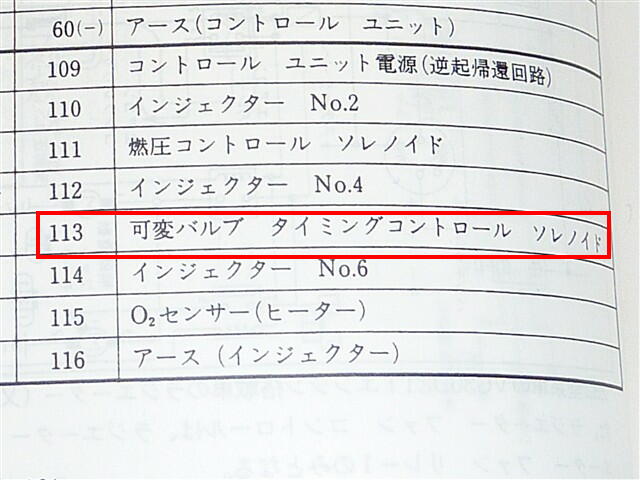 60(−) アース(コントロール ユニット)
109 コントロール ユニット電源(逆起帰還回路)
110 インジェクター No.2
111 燃圧コントロール ソレノイド
112 インジェクター No.4
113 可変バルブ タイミングコントロール ソレノイド
114 インジェクター No.6
115 O₂センサー(ヒーター)
116 アース (インジェクター)